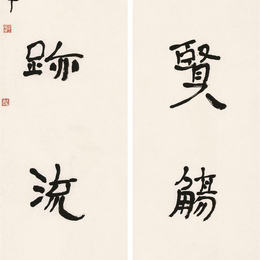 賢觴
跡流